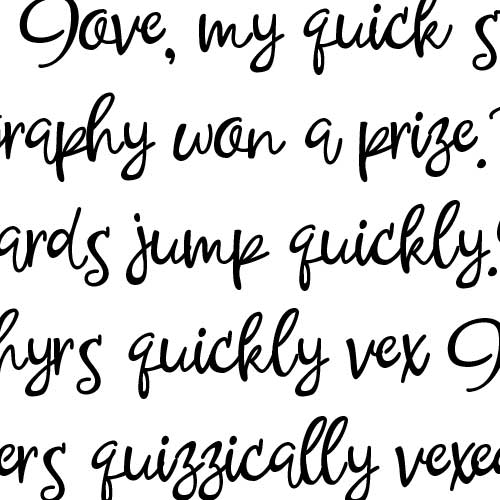 Jove, my quick s
raphy won a prize.
ards jump quickly.
hyrs quickly vex J
ers quizzically vexe